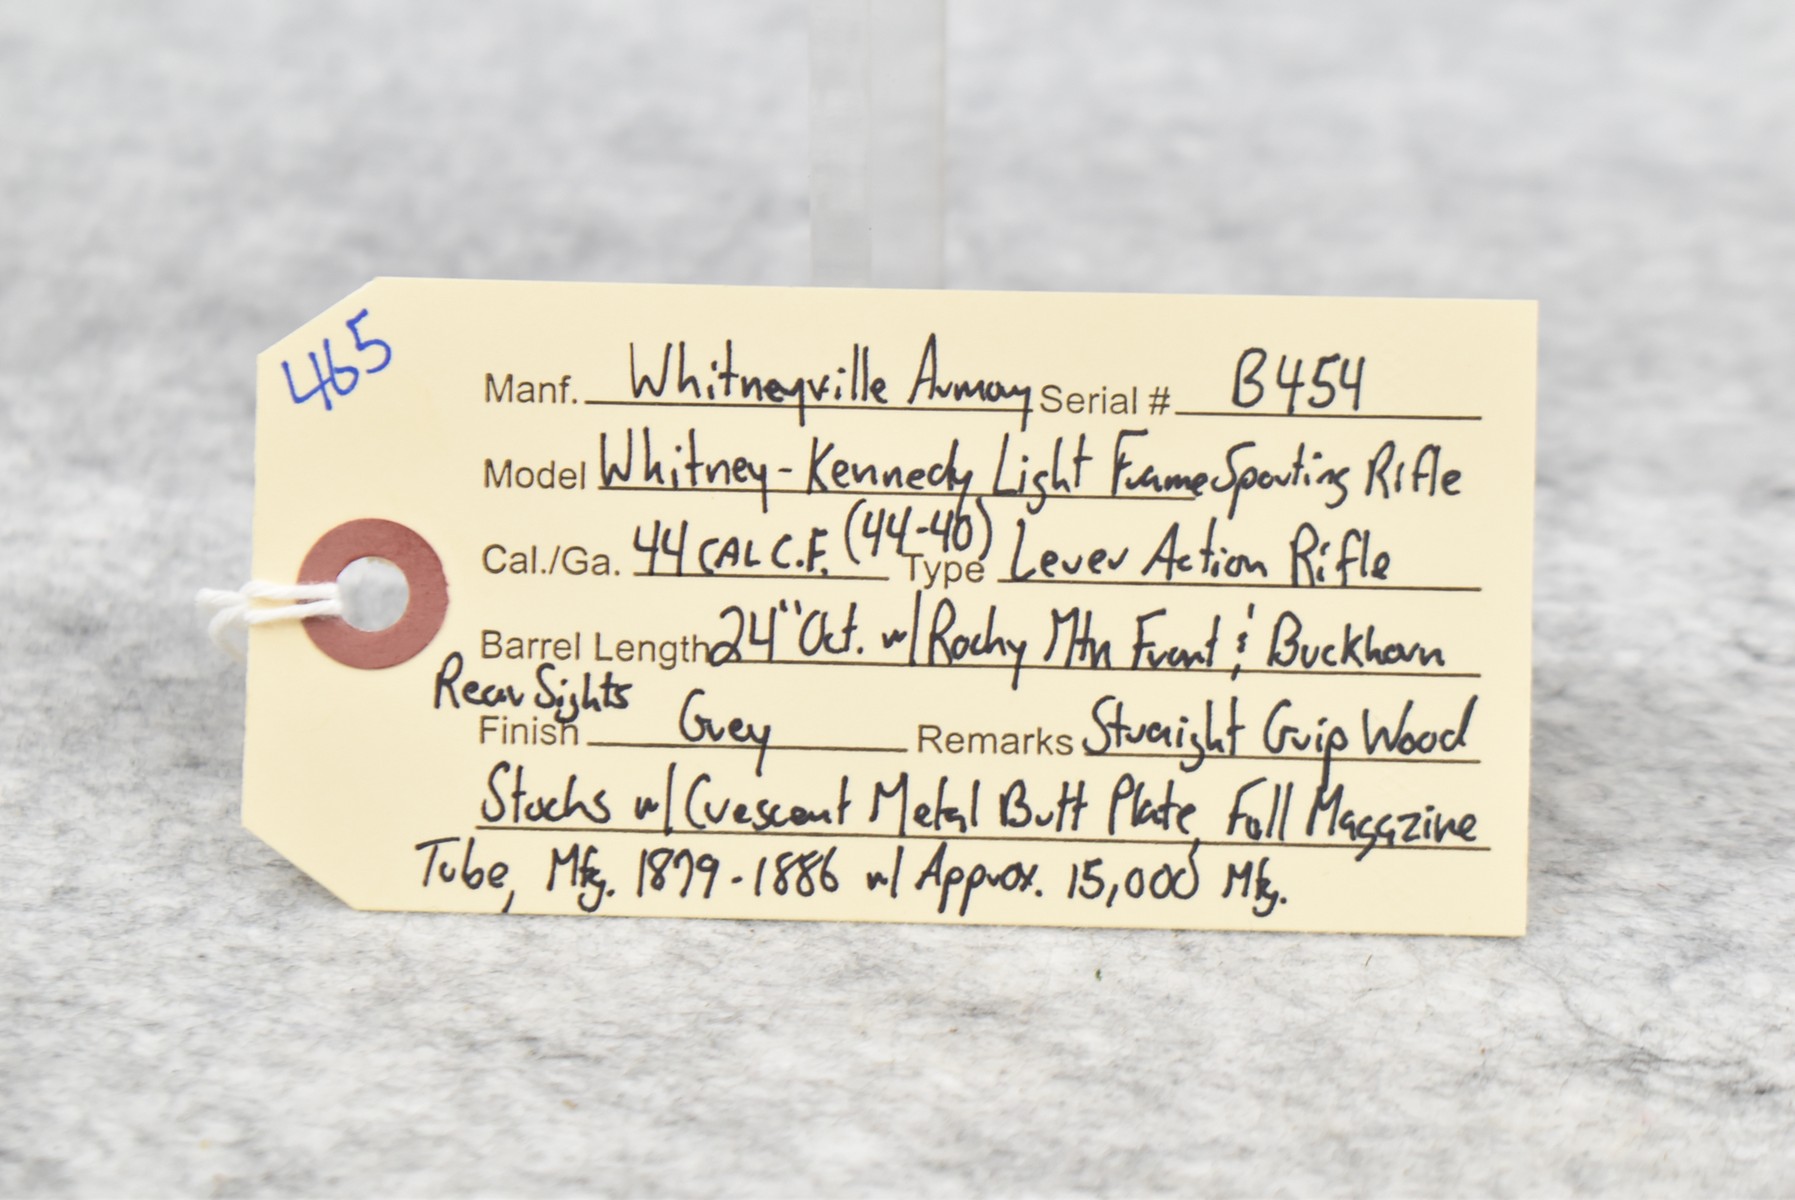 465
Manf. Whitneyville Armory Serial # B454
Model Whitney-Kennedy Light Frame Sporting Rifle
Cal./Ga. 44 CAL C.F. (44-40) Type Lever Action Rifle
Barrel Length 24" Oct. w/ Rocky Mtn Front & Buckhorn
Rear Sights
Finish Grey Remarks Straight Grip Wood
Stocks w/ Crescent Metal Butt Plate, Full Magazine
Tube, Mfg. 1879-1886 w/ Approx. 15,000 Mfg.